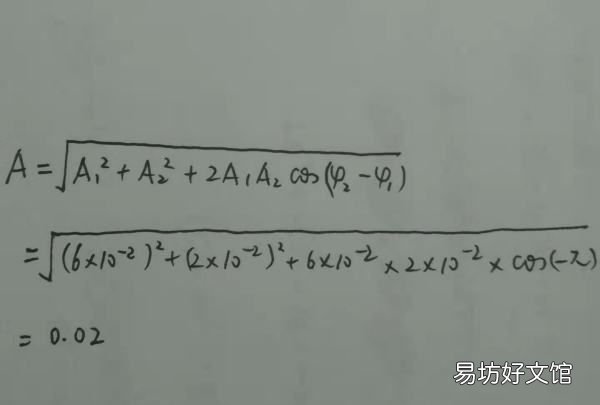 A = √(A₁² + A₂² + 2A₁A₂ cos(φ₂ - φ₁))
= √((6×10⁻²)² + (2×10⁻²)² + 6×10⁻² × 2×10⁻² × cos(-π))
= 0.02
易坊好文馆